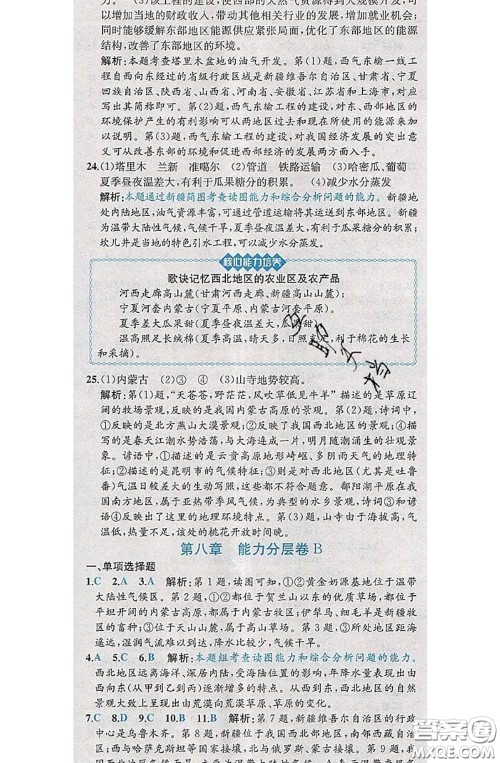 力。(3)该工程的建设，使西部的天然气资源得到大规模开发，可
以增加当地的财政收入，带动其他相关行业的发展，增加就业机会；
同时能够缓解东部地区能源供应紧张局面，优化东部地区的能源
结构，改善了东部地区的环境。
解析：本题考查塔里木盆地的油气开发。第(1)题，西气东输一线工程
自西向东经过的省级行政区域是新疆维吾尔自治区、甘肃省、宁夏
回族自治区、陕西省、山西省、河南省、安徽省、江苏省和上海市，对应
写出其简称即可。第(2)题，西气东输工程的建设，对西部地区的环
境保护产生的有利影响可从两地区过去和现在所使用的能源来加
以说明。第(3)题，西气东输工程的建设，对我国经济发展的突出意
义可从改善东部的环境和促进西部的经济发展两大方面来进行。
24.(1)塔里木 兰新 准噶尔 (2)管道 铁路运输 (3)哈密瓜、葡萄
夏季昼夜温差大，有利于瓜果糖分的积累。 (4)减少水分蒸发
解析：本题通过新疆简图考查读图能力和综合分析问题的能力。新疆地
处内陆地区，油气资源丰富，可通过管道运输将其运送到东部地区。新疆
属于温带大陆性气候，夏季昼夜温差大，有利于瓜果糖分的积累；
坎儿井是当地的特色引水工程，可以减少水分蒸发。
核心能力培养
歌诀记忆西北地区的农业区及农产品
河西走廊高山麓(甘肃河西走廊、新疆高山山麓)，
宁夏河套内蒙古(宁夏平原、内蒙古河套平原)。
夏季差大瓜果甜(夏季昼夜温差大，瓜果特别甜)，
温高照足长绒棉(夏季气温高，晴天多，日照充足，利于棉花的生长
和采摘)。
25.(1)内蒙古 (2)③ ④ (3)山寺地势较高。
解析：第(1)题，“天苍苍，野茫茫，风吹草低见牛羊”描述的是草原辽
阔的牧场景观，反映的是我国内蒙古高原的景观。第(2)题，诗词中，
①反映的是北方燕山大漠景观，②描写的是人的思想活动，③描写
的是春天江潮水势浩荡，与大海连成一片，明月跟随潮涌生的壮观
景象。谚语中，①描述的是云贵高原地形崎岖、多阴雨天气的地理特
征；②描述的是昆明市的气候特征；③指出我国西北地区(尤其是大
陆性气候)气温日较差大的气候特征，④描述的是西北地区干旱区
(尤其是塔里木盆地)独特的地理环境特征。鄱阳湖平原在我国
南方地区，属亚热带季风气候，为典型的水乡景观，诗词③和谚语
④体现了这里的地理环境特点。第(3)题，山寺由于海拔高，气温
低，故桃花开放时间晚。
第八章 能力分层卷 B
一、单项选择题
1.C 2.A 3.A 解析：第1题，读图可知，①②黄金奶源基地位于温带
大陆性气候区。第2题，①②都位于贺兰山以东的我国北方，都位于
平坦开阔的内蒙古高原，都盛产内蒙古牧区；伊犁马、细毛羊是新疆牧
区的畜种；③位于东北平原，不是高原。第3题，③所处地区距海
遥远，湿润气流难以到达，降水比较少，气候干旱。
4.A 5.C 6.B 解析：本题组考查读图能力和综合分析问题的能力。
西北地区远离海洋，深居内陆，受距海陆的影响，年降水量表现出由
西向东(从甲到乙到丙)逐渐增多的趋势，因降水量的变化，自然景
观表现出由荒漠向荒漠草原、草原的变化。
7.C 8.D 9.C 10.B 11.B 解析：第7题，新疆维吾尔自治区的行政
中心是乌鲁木齐。第8题，新疆维吾尔自治区东北与蒙古国接壤，
西面与哈萨克斯坦等国接壤，北与俄罗斯、蒙古接壤。第9题，新疆